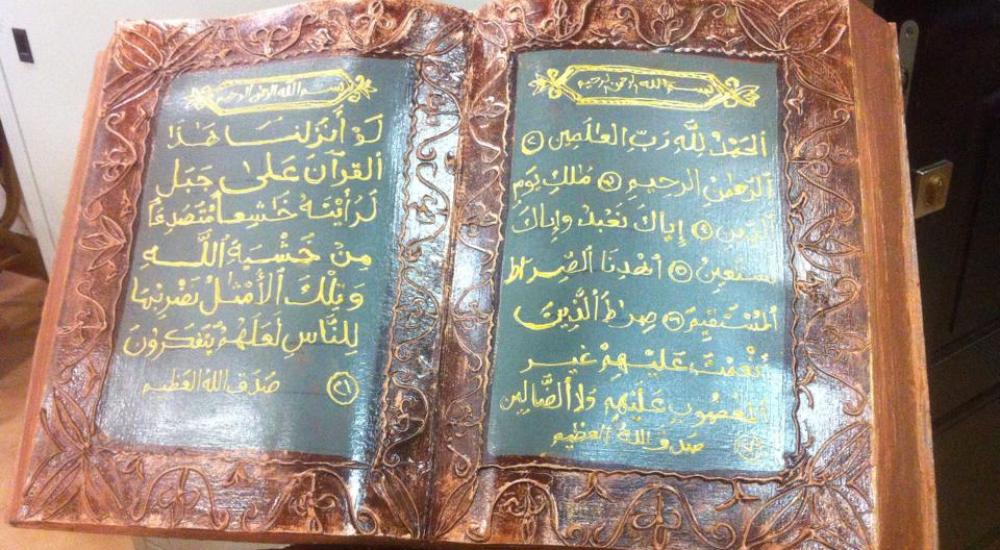 بسم الله الرحمن الرحيم
ٱلحَمْدُ لِلَّهِ رَبِّ ٱلعَٰلَمِينَ ٢
ٱلرَّحمَٰنِ ٱلرحِيمِ ٣ مَٰلِكِ يَوْمِ
ٱلدِّينِ ٤ إِيَّاكَ نَعْبُدُ وإِيَّاكَ
نَستَعِينُ ٥ ٱهْدِنَا ٱلصِّرَٰطَ
ٱلمُسْتَقِيمَ ٦ صِرَٰطَ ٱلَّذِينَ
أَنْعَمْتَ عَلَيْهِمْ غَيرِ
ٱلمَغضُوبِ عَلَيْهِمْ وَلَا ٱلضَّالِّين
صدق اللهُ العظيم
بسم الله الرحمن الرحيم
لَوْ أَنزَلنَا هَٰذَا
ٱلقُرآنَ عَلَىٰ جَبَلٍ
لَرَأَيْتَهُ خَٰشِعاً مُتَصَدِعاً
مِنْ خَشْيَةِ ٱللَّهِ
وَتِلْكَ ٱلأَمْثَٰلُ نَضْرِبُهَا
لِلنَّاسِ لَعَلَهُمْ يَتَفَكَرُونَ
٢١ صَدَقَ اللهُ العَظِيم